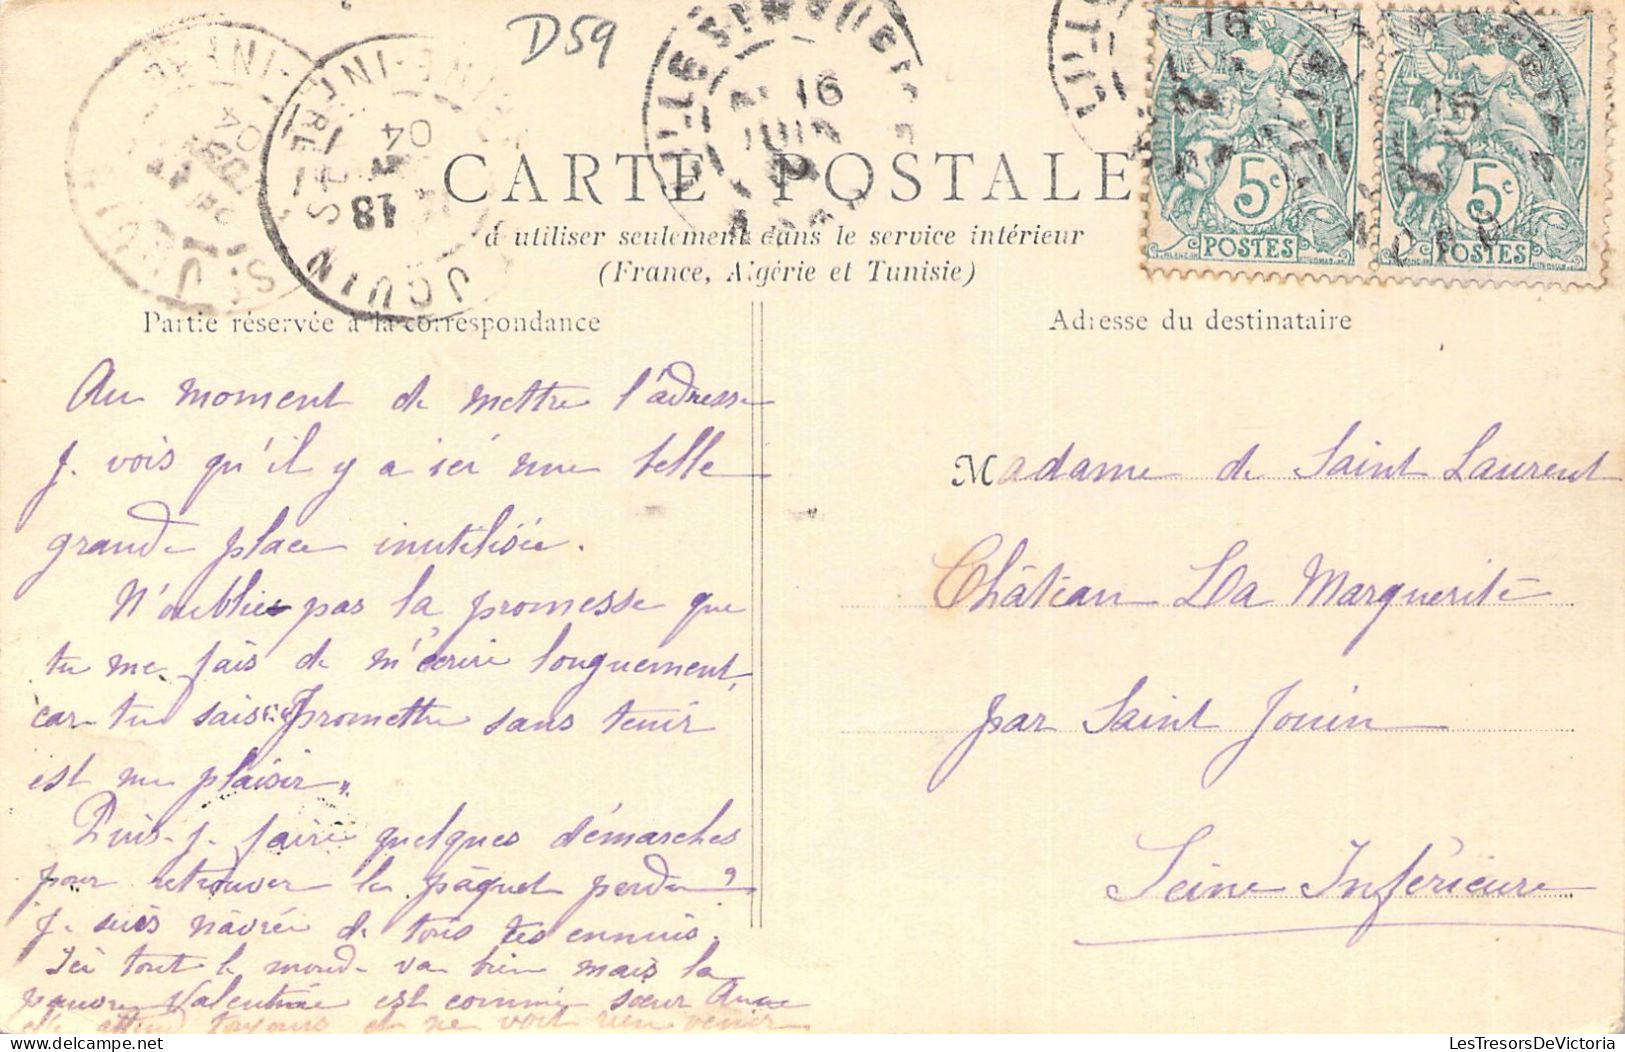 D59
CARTE POSTALE
à utiliser seulement dans le service intérieur
(France, Algérie et Tunisie)
5c
POSTES
5c
POSTES
16
16
16
04
18
JOUIN
Partie réservée à la correspondance
Au moment de mettre l'adresse
je vois qu'il y a ici une telle
grande place inutilisée.
N'oublie pas la promesse que
tu me fais de m'écrire longuement,
car tu sais "Promettre sans tenir
est un plaisir"
Puis-je faire quelques démarches
pour retrouver le paquet perdu ?
Je suis navrée de tous tes ennuis.
Ici tout le monde va bien mais la
pauvre Valentine est comme sœur Anne
elle attend toujours et ne voit rien venir
Adresse du destinataire
Madame de Saint Laurent
Château La Marguerite
par Saint Jouin
Seine Inférieure
LesTresorsDeVictoria.com